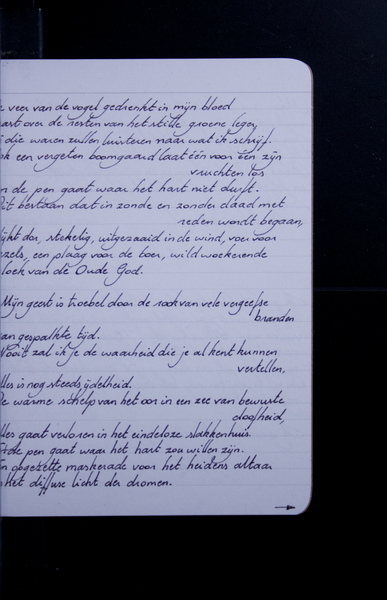 veer van de vogel gedrenkt in mijn bloed
over de resten van het stille groene leger,
die waren zullen luisteren naar wat ik schrijf.
een vergeten boomgaard laat één voor één zijn
vruchten los
de pen gaat waar het hart niet durft.
bestaan dat in zonde en zonder daad met
reden wordt begaan,
dor, stekelig, uitgezaaid in de wind, voer voor
een plaag voor de boer, wild woekerende
van de Oude God.
Mijn geest is troebel door de rook van vele vergeefse
branden
gespalkte tijd.
Nooit zal ik je de waarheid die je al kent kunnen
vertellen,
is nog steeds ijdelheid.
De warme schelp van het oor in een zee van bewuste
doofheid,
gaat verloren in het eindeloze slakkenhuis.
de pen gaat waar het hart zou willen zijn.
opgezette maskerade voor het heidens altaar
het diffuse licht der dromen.